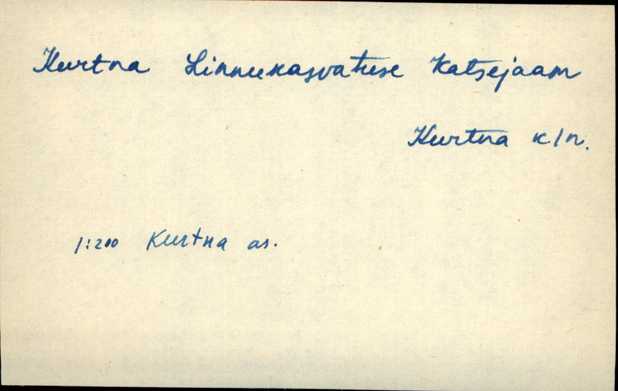 Kurtna Linnukasvatuse Katsejaam
Kurtna k/n.
1:200 Kurtna as.